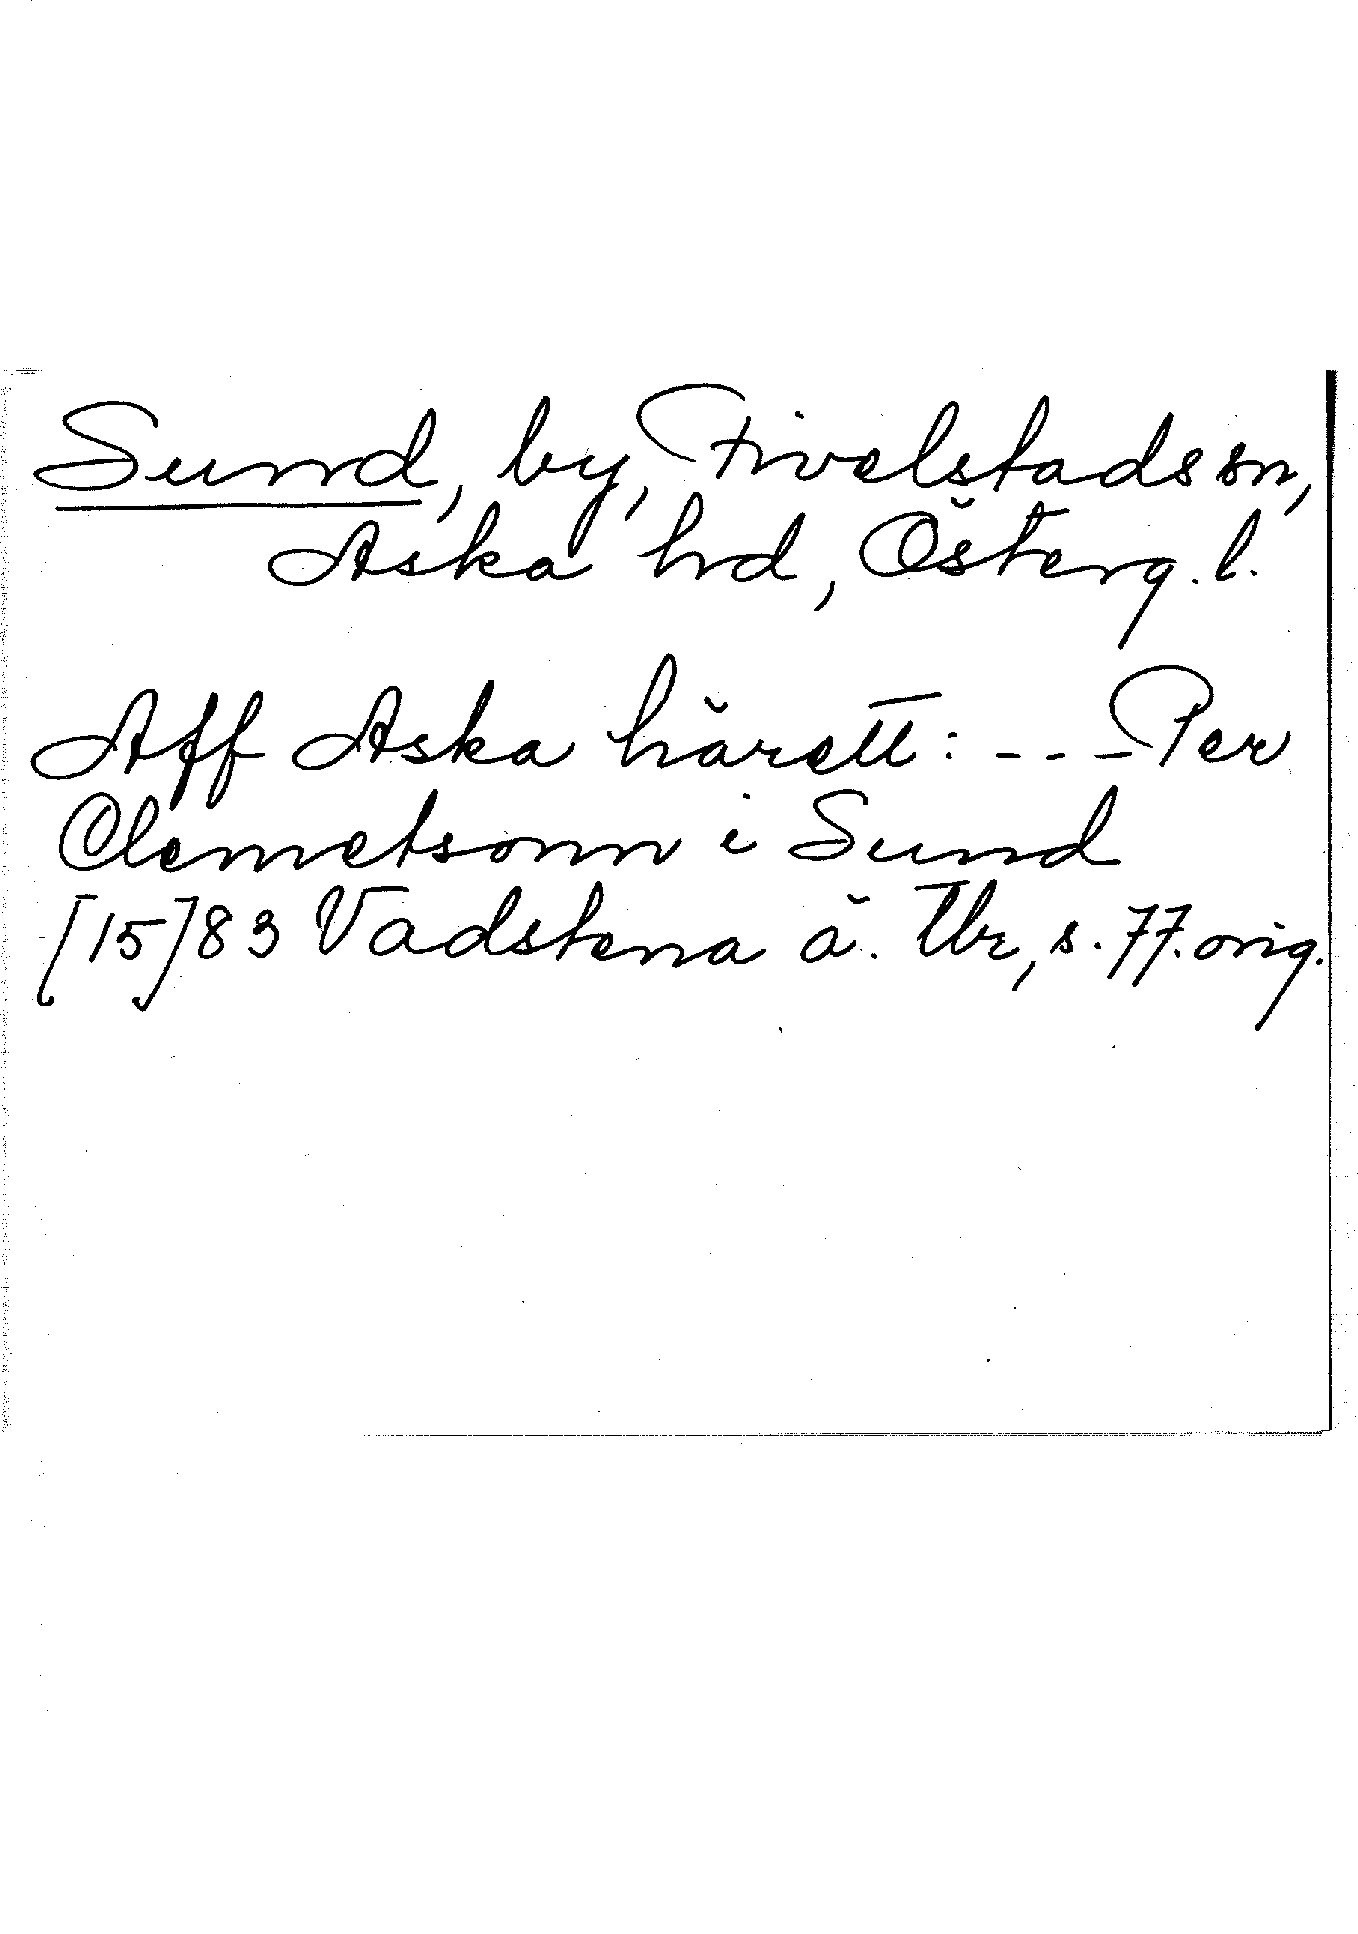 Sund, by, Fivelstads sn,
Aska hd, Österg. l.
Aff Aska härett: --- Per
Clemetsonn i Sund
[15]83 Vadstena ä. Tbr, s. 77. orig.